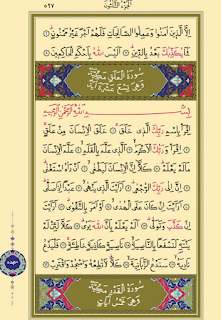 ٥٩٧ الجزء الثلاثون
إِلَّا الَّذِينَ آمَنُوا وَعَمِلُوا الصَّالِحَاتِ فَلَهُمْ أَجْرٌ غَيْرُ مَمْنُونٍ ٦
فَمَا يُكَذِّبُكَ بَعْدُ بِالدِّينِ ٧ أَلَيْسَ اللَّهُ بِأَحْكَمِ الْحَاكِمِينَ ٨
سُورَةُ الْعَلَقِ مَكِّيَّةٌ
وَهِيَ تِسْعَ عَشْرَةَ آيَةً
بِسْمِ اللَّهِ الرَّحْمَنِ الرَّحِيمِ
اِقْرَأْ بِاسْمِ رَبِّكَ الَّذِي خَلَقَ ١ خَلَقَ الْإِنْسَانَ مِنْ عَلَقٍ ٢
اِقْرَأْ وَرَبُّكَ الْأَكْرَمُ ٣ الَّذِي عَلَّمَ بِالْقَلَمِ ٤ عَلَّمَ الْإِنْسَانَ
مَا لَمْ يَعْلَمْ ٥ كَلَّا إِنَّ الْإِنْسَانَ لَيَطْغَى ٦ أَنْ رَآهُ اسْتَغْنَى ٧
إِنَّ إِلَى رَبِّكَ الرُّجْعَى ٨ أَرَأَيْتَ الَّذِي يَنْهَى ٩ عَبْدًا إِذَا صَلَّى ١٠
أَرَأَيْتَ إِنْ كَانَ عَلَى الْهُدَى ١١ أَوْ أَمَرَ بِالتَّقْوَى ١٢ أَرَأَيْتَ
إِنْ كَذَّبَ وَتَوَلَّى ١٣ أَلَمْ يَعْلَمْ بِأَنَّ اللَّهَ يَرَى ١٤ كَلَّا لَئِنْ لَمْ
يَنْتَهِ لَنَسْفَعًا بِالنَّاصِيَةِ ١٥ نَاصِيَةٍ كَاذِبَةٍ خَاطِئَةٍ ١٦ فَلْيَدْعُ
نَادِيَهُ ١٧ سَنَدْعُ الزَّبَانِيَةَ ١٨ كَلَّا لَا تُطِعْهُ وَاسْجُدْ وَاقْتَرِبْ ١٩
سُورَةُ الْقَدْرِ مَكِّيَّةٌ
وَهِيَ خَمْسُ آيَاتٍ